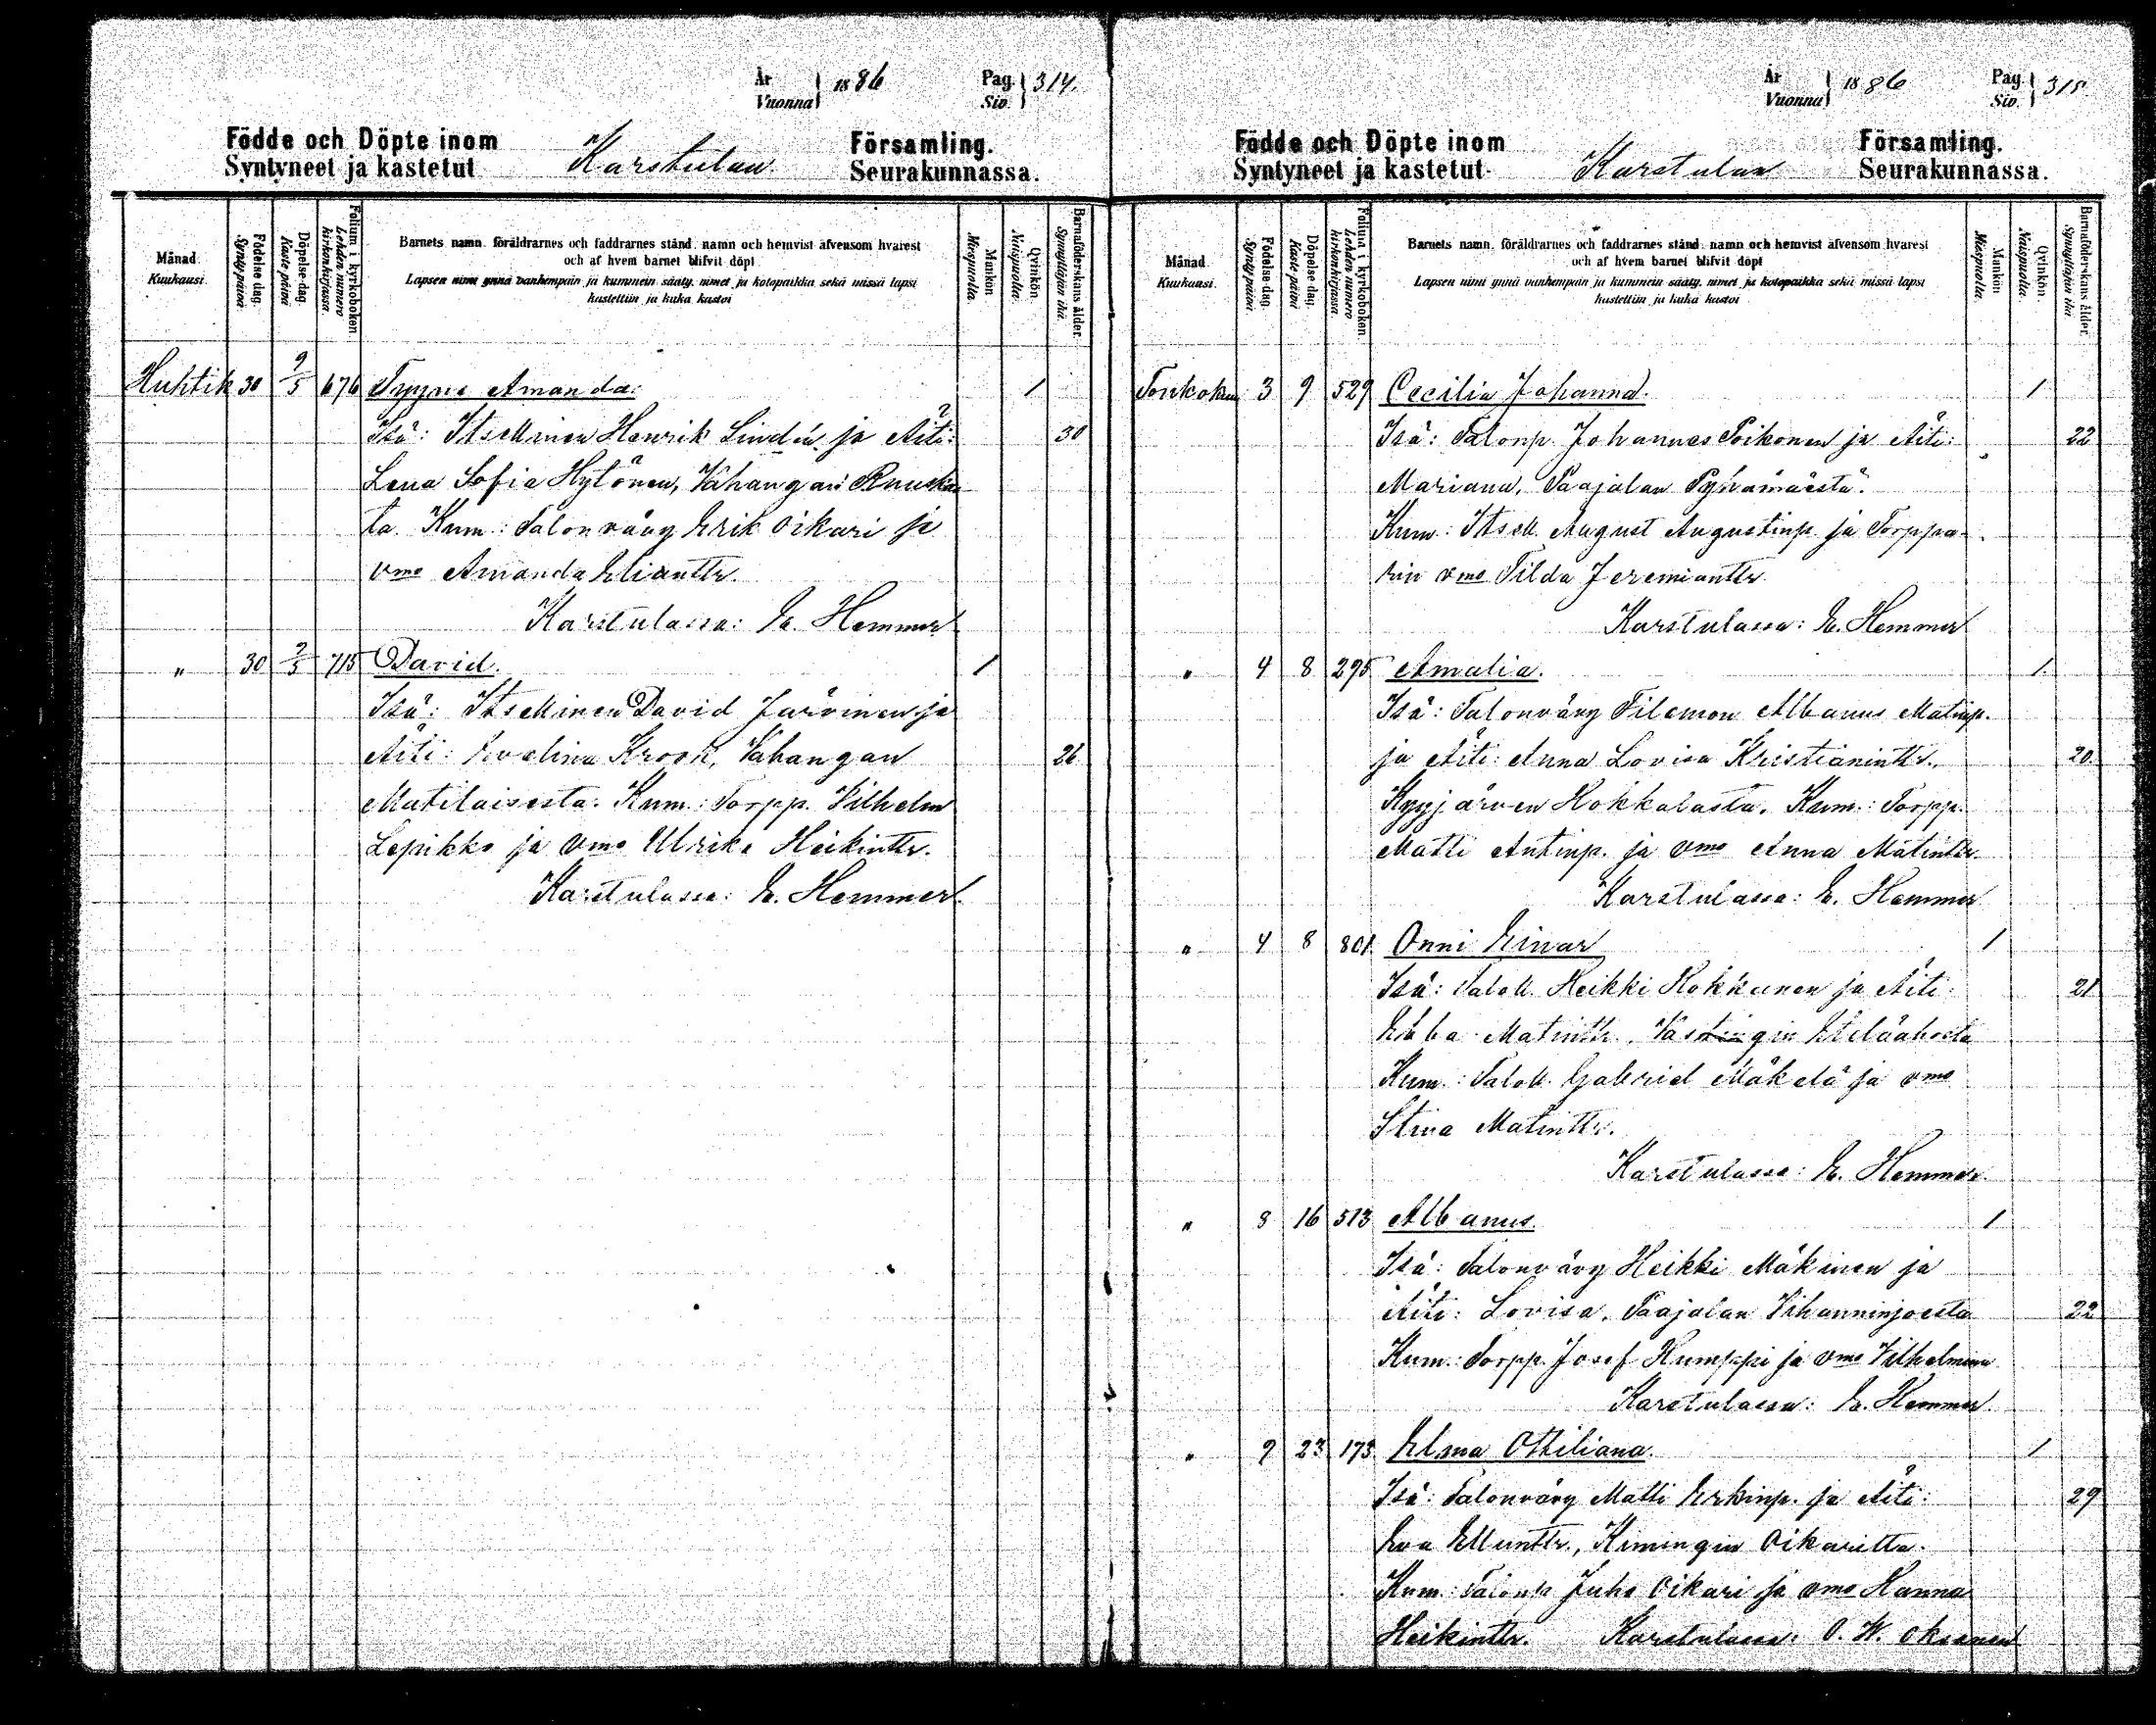 År Vuonna 1886 Pag. Siv. 314.
Födde och Döpte inom Karstulan Församling.
Syntyneet ja kastetut Seurakunnassa.
Månad. Kuukausi.
Födelse dag. Synty päivä
Döpelse dag. Kaste päivä
Folium i kyrkoboken. Lehden numero kirkonkirjassa.
Barnets namn, föräldrarnes och faddrarnes stånd, namn och hemvist äfvensom hvarest
och af hvem barnet blifvit döpt
Lapsen nimi ynnä vanhempain ja kummein sääty, nimet ja kotopaikka sekä missä lapsi
kastettiin ja kuka kastoi
Mankön Miespuolta.
Qvinkön. Naispuolta.
Barnaföderskans ålder. Synnyttäjän ikä.
Huhtik 30 9/5 676 Tyyne Amanda. 1
Isä: Itsellinen Henrik Lindén ja Äiti: 30
Lena Sofia Hytönen, Vahangan Ruuska
ta. Kum.: Talonvävy Erik Oikari ja
vmo Amanda Elianttr.
Karstulassa: E. Hemmer
" 30 9/5 715 David. 1
Isä: Itsellinen David Järvinen ja
Äiti: Evelina Krook, Vahangan 26
Matilaisesta. Kum.: Torpp. Vilhelm
Lepikko ja vmo Ulrika Heikinttr.
Karstulassa: E. Hemmer.
År Vuonna 1886 Pag. Siv. 315.
Födde och Döpte inom Karstulan Församling.
Syntyneet ja kastetut Seurakunnassa.
Månad. Kuukausi.
Födelse dag. Synty päivä
Döpelse dag. Kaste päivä
Folium i kyrkoboken. Lehden numero kirkonkirjassa.
Barnets namn, föräldrarnes och faddrarnes stånd, namn och hemvist äfvensom hvarest
och af hvem barnet blifvit döpt
Lapsen nimi ynnä vanhempain ja kummein sääty, nimet ja kotopaikka sekä missä lapsi
kastettiin ja kuka kastoi
Mankön Miespuolta.
Qvinkön. Naispuolta.
Barnaföderskans ålder. Synnyttäjän ikä
Toukokuu 3 9 529 Cecilia Johanna. 1
Isä: Talonp. Johannes Poikonen ja Äiti: 22
Mariana, Paajalan Pyhämäestä.
Kum: Itsell. August Augustinp. ja Torppa-
rin vmo Tilda Jeremianttr.
Karstulassa: E. Hemmer
" 4 8 295 Amalia. 1.
Isä: Talonvävy Filemon Albanus Matinp.
ja Äiti: Anna Lovisa Kristianinttr. 20
Kyyjärven Hokkalasta. Kum.: Torpp.
Matti Antinp. ja vmo Anna Matinttr.
Karstulassa: E. Hemmer
" 4 8 801 Onni Einar 1
Isä: Taloll. Heikki Hokkanen ja Äiti: 21
Ebba Matinttr., Vastingin Eteläahosta
Kum.: Taloll. Gabriel Mäkelä ja vmo
Stina Matinttr.
Karstulassa: E. Hemmer.
" 8 16 513 Albanus. 1
Isä: Talonvävy Heikki Mäkinen ja
Äiti: Lovisa, Paajalan Vihanninjoesta 22
Kum.: Torpp. Josef Kumppi ja vmo Vilhelmina
Karstulassa: E. Hemmer.
" 9 23 173 Elma Ottiliana. 1
Isä: Talonvävy Matti Erkinp. ja Äiti: 29
Eva Ellunttr., Kimingin Oikarilta.
Kum.: Talonp. Juho Oikari ja vmo Hanna
Heikinttr. Karstulassa: O. W. Oksanen